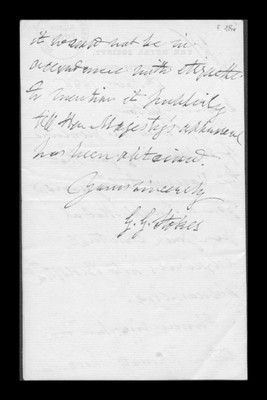 it would not be in
accordance with etiquette
to mention it publicly
till Her Majesty's approval
has been obtained.
Yours sincerely
G. G. Stokes